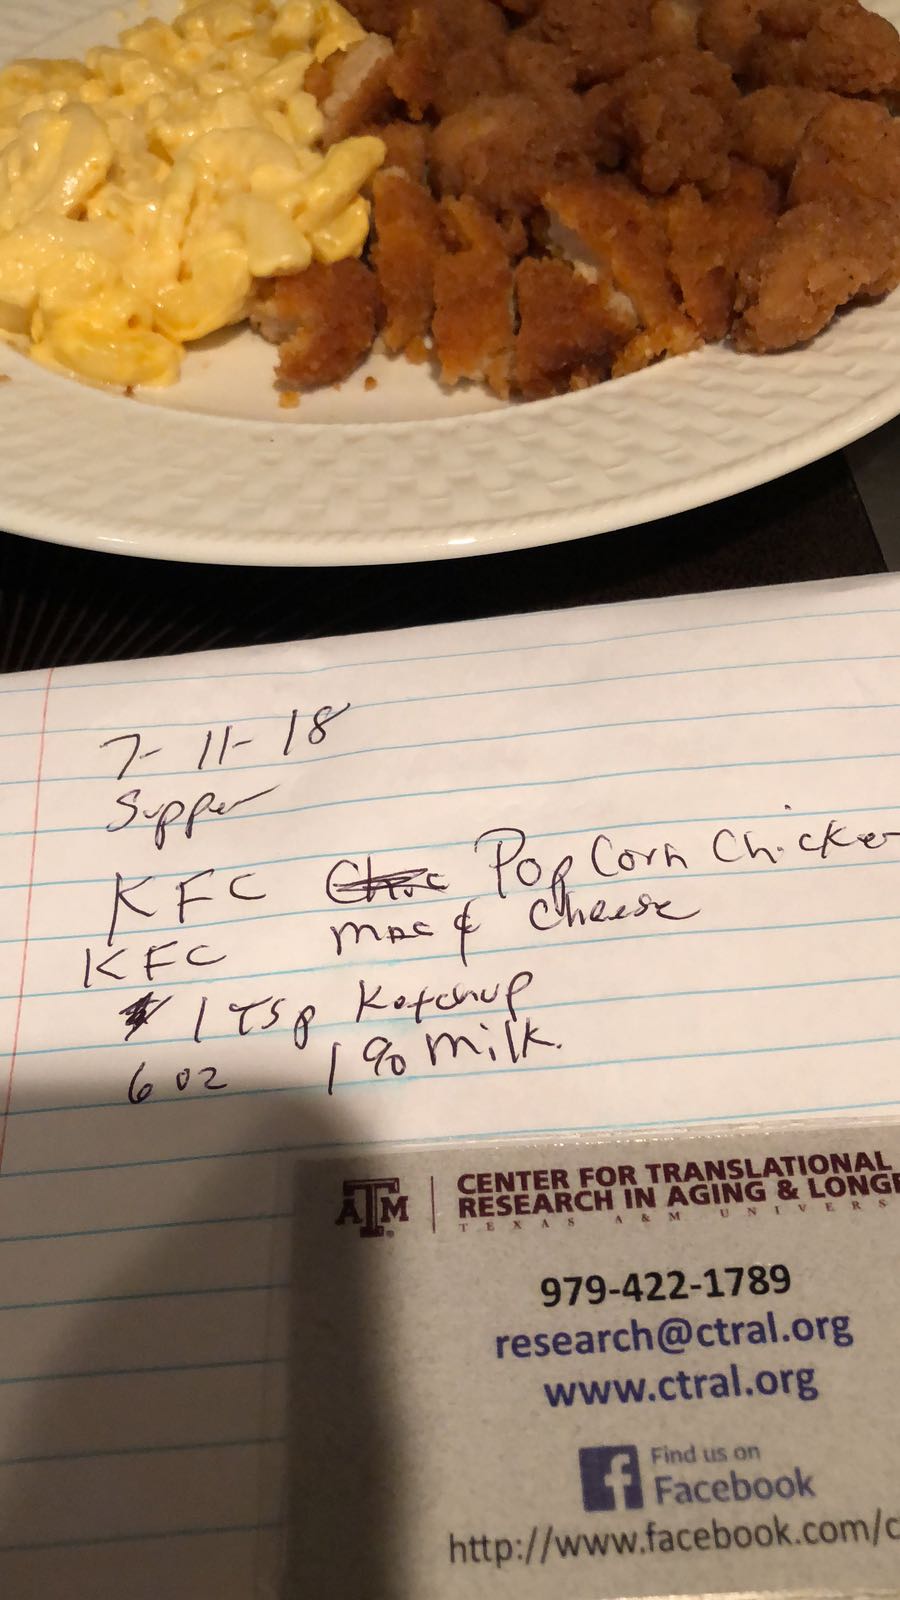 7-11-18
Supper
KFC PopCorn Chicken
KFC Mac & Cheese
1 Tsp Ketchup
6 oz 1% Milk.
ATM
CENTER FOR TRANSLATIONAL
RESEARCH IN AGING & LONGE
TEXAS A&M UNIVERS
979-422-1789
research@ctral.org
www.ctral.org
f Find us on
Facebook
http://www.facebook.com/c